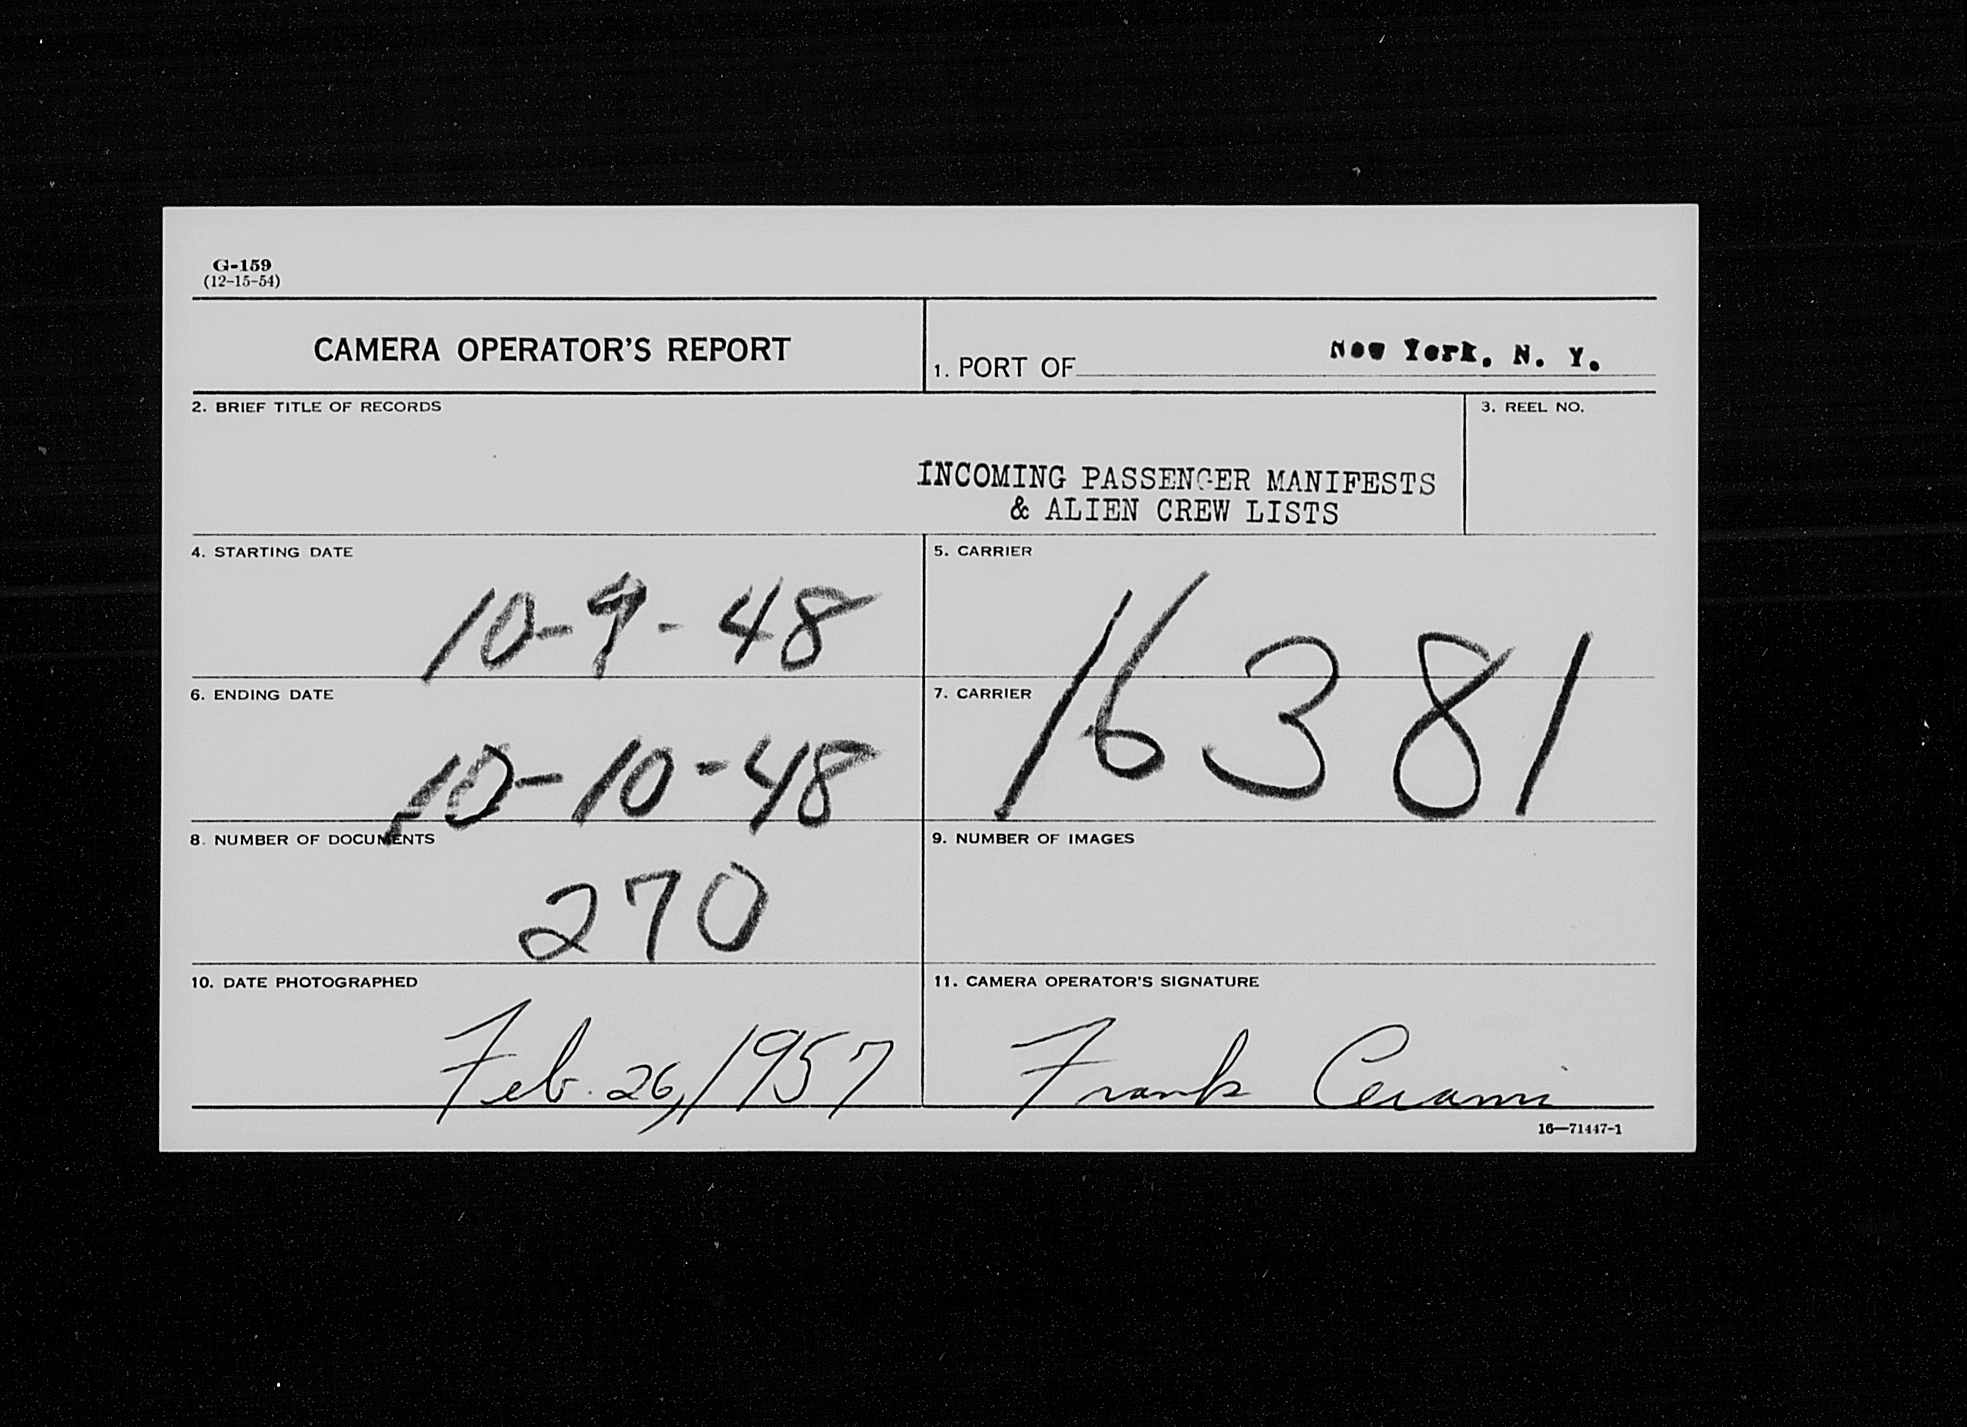 G-159
(12-15-54)
CAMERA OPERATOR'S REPORT
1. PORT OF New York, N. Y.
2. BRIEF TITLE OF RECORDS
3. REEL NO.
INCOMING PASSENGER MANIFESTS
& ALIEN CREW LISTS
4. STARTING DATE
10-9-48
5. CARRIER
6. ENDING DATE
10-10-48
7. CARRIER
16381
8. NUMBER OF DOCUMENTS
270
9. NUMBER OF IMAGES
10. DATE PHOTOGRAPHED
Feb. 26, 1957
11. CAMERA OPERATOR'S SIGNATURE
Frank Cerami
16—71447-1